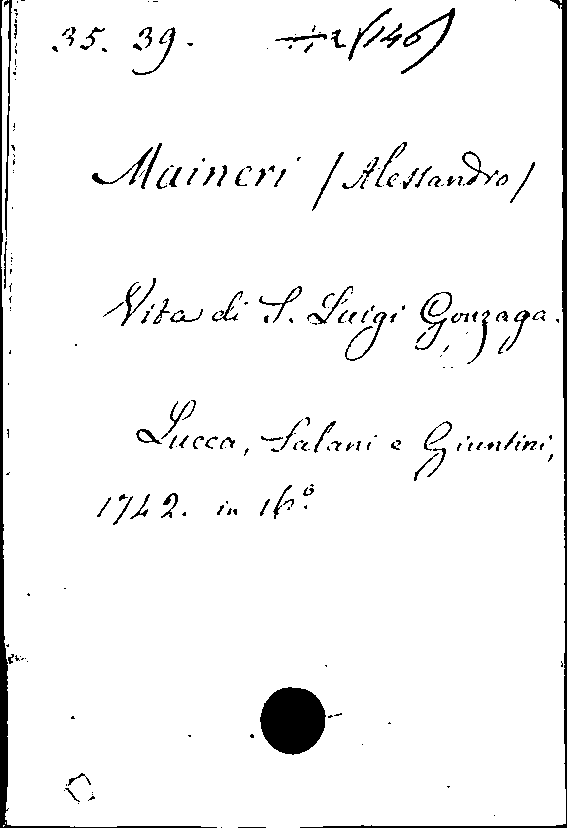 35. 39. 2 (146)
Maineri /Alessandro/
Vita di S. Luigi Gonzaga.
Lucca, Salani e Giuntini,
1742. in 16.º